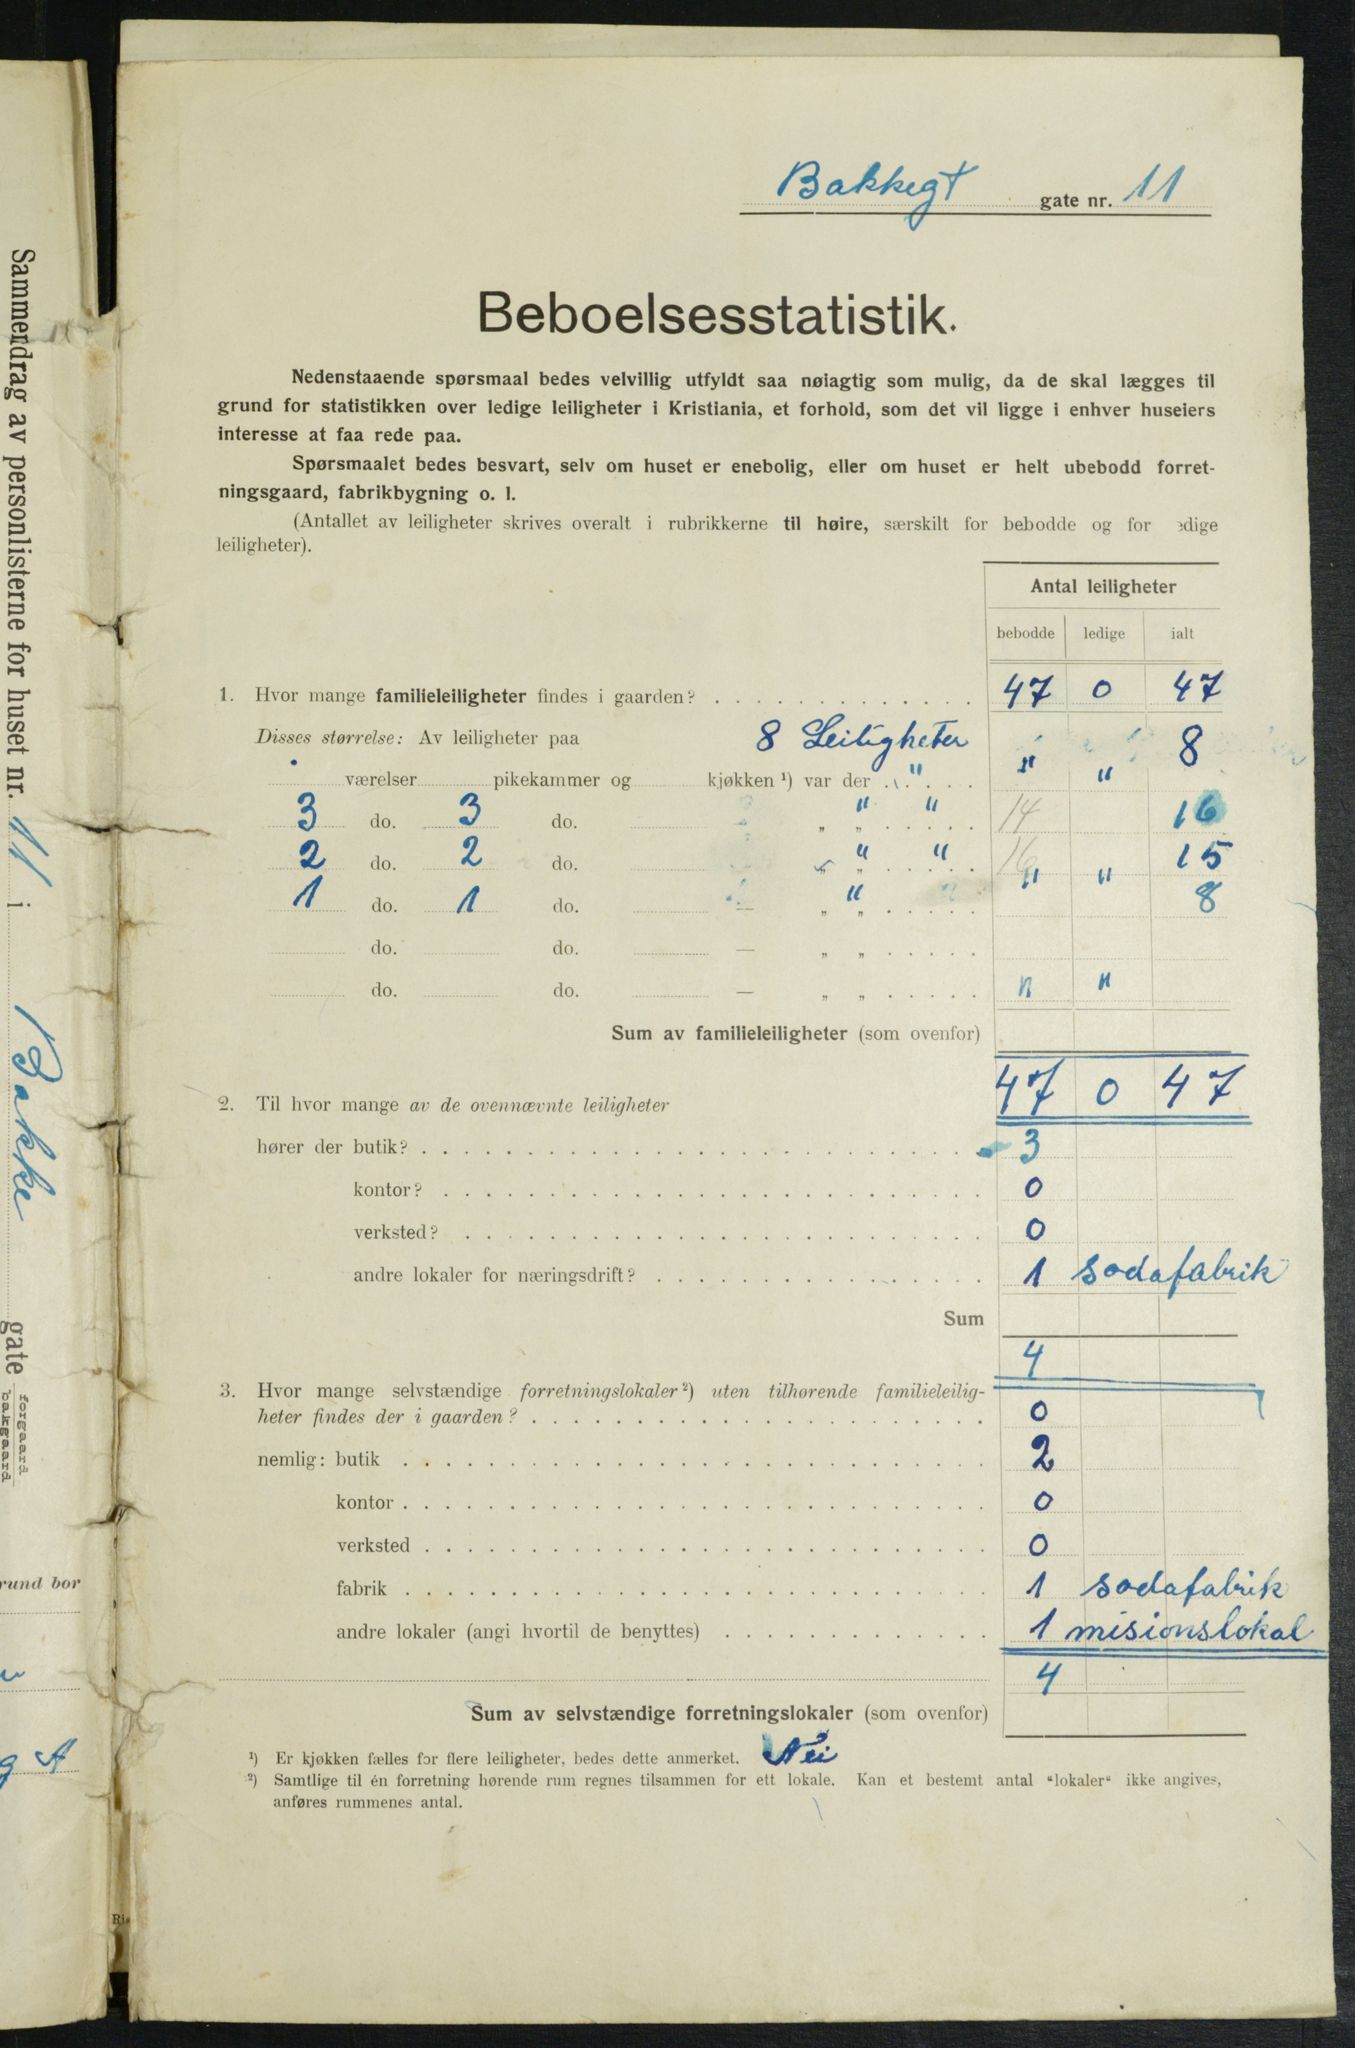 Bakkegt gate nr. 11
Beboelsesstatistik.
Nedenstaaende spørsmaal bedes velvillig utfyldt saa nøiagtig som mulig, da de skal lægges til
grund for statistikken over ledige leiligheter i Kristiania, et forhold, som det vil ligge i enhver huseiers
interesse at faa rede paa.
Spørsmaalet bedes besvart, selv om huset er enebolig, eller om huset er helt ubebodd forret-
ningsgaard, fabrikbygning o. l.
(Antallet av leiligheter skrives overalt i rubrikkerne til høire, særskilt for bebodde og for edige
leiligheter).
Antal leiligheter
bebodde ledige ialt
1. Hvor mange familieleiligheter findes i gaarden? 47 0 47
Disses størrelse: Av leiligheter paa 8 Leiligheter 8
værelser pikekammer og kjøkken ¹) var der " " "
3 do. 3 do. „ „ " " 14 16
2 do. 2 do. „ „ " " 16 15
1 do. 1 do. — „ „ " " " 8
do. do. — „ „
do. do. — „ „ " "
Sum av familieleiligheter (som ovenfor)
47 0 47
2. Til hvor mange av de ovennævnte leiligheter
hører der butik? 3
kontor? 0
verksted? 0
andre lokaler for næringsdrift? 1 sodafabrik
Sum
4
3. Hvor mange selvstændige forretningslokaler ²) uten tilhørende familieleilig-
heter findes der i gaarden? 0
nemlig: butik 2
kontor 0
verksted 0
fabrik 1 sodafabrik
andre lokaler (angi hvortil de benyttes) 1 misionslokal
4
Sum av selvstændige forretningslokaler (som ovenfor)
¹) Er kjøkken fælles for flere leiligheter, bedes dette anmerket. Nei
²) Samtlige til én forretning hørende rum regnes tilsammen for ett lokale. Kan et bestemt antal "lokaler" ikke angives,
anføres rummenes antal.
Sammendrag av personlisterne for huset nr. 11 i Bakke gate forgaard
bakgaard
rund bor
g A
Ri